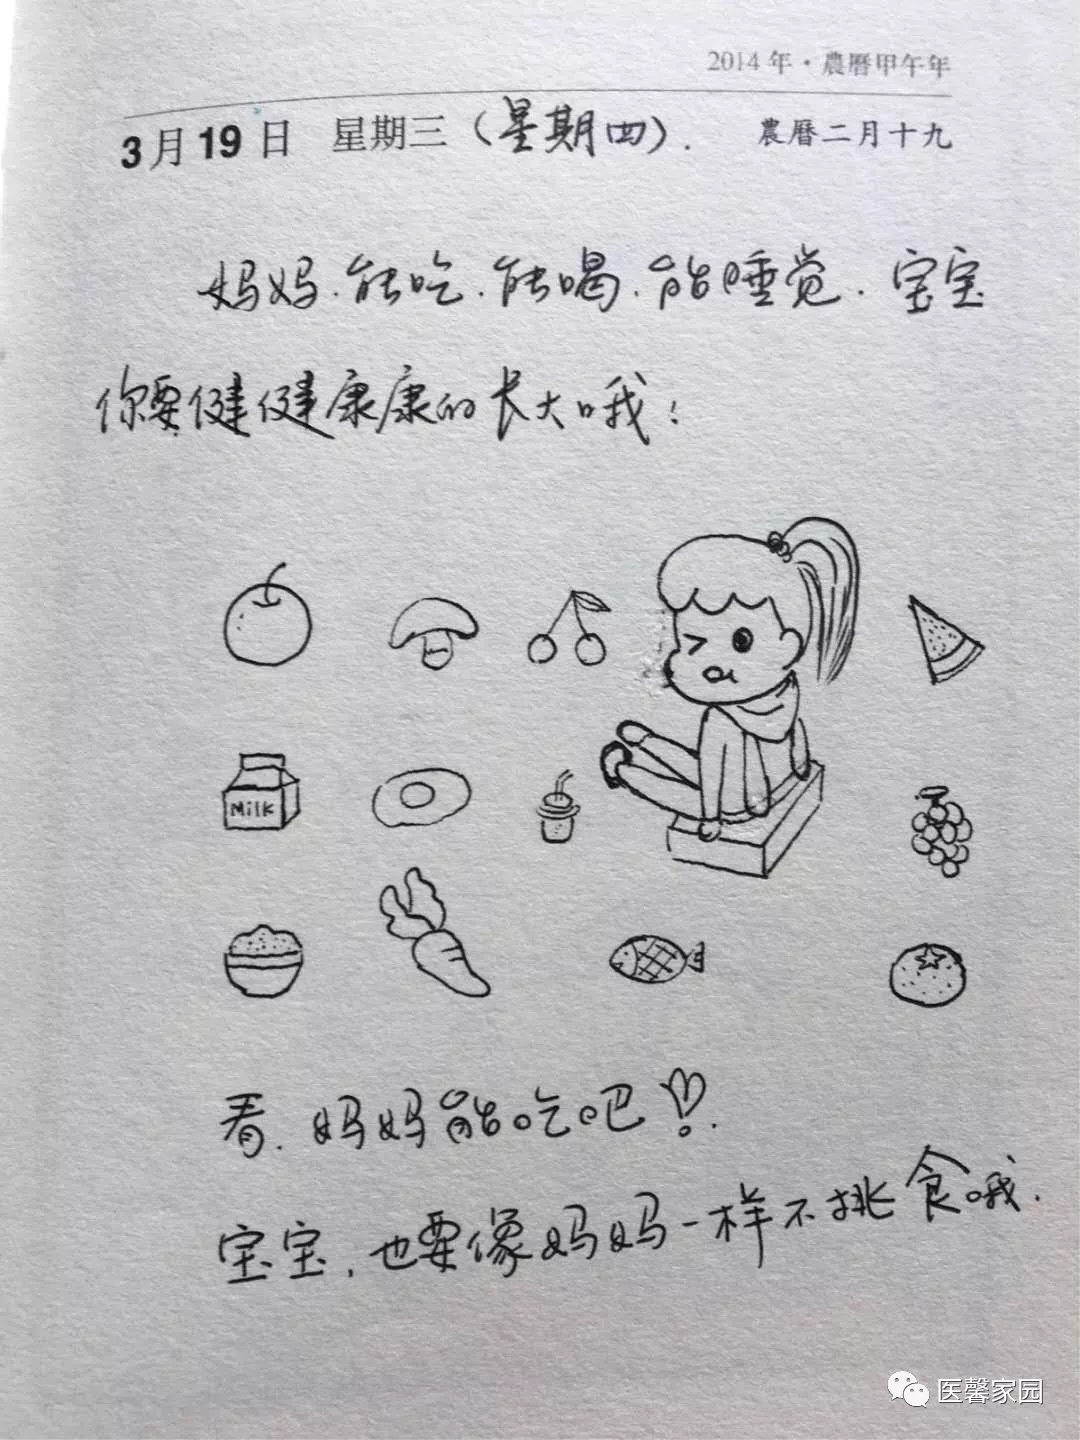 2014年·農曆甲午年
3月19日 星期三(星期四).
農曆二月十九
妈妈.能吃.能喝.能睡觉.宝宝
你要健健康康的长大哦!
MiLK
看.妈妈能吃吧!
宝宝,也要像妈妈一样不挑食哦.
医馨家园